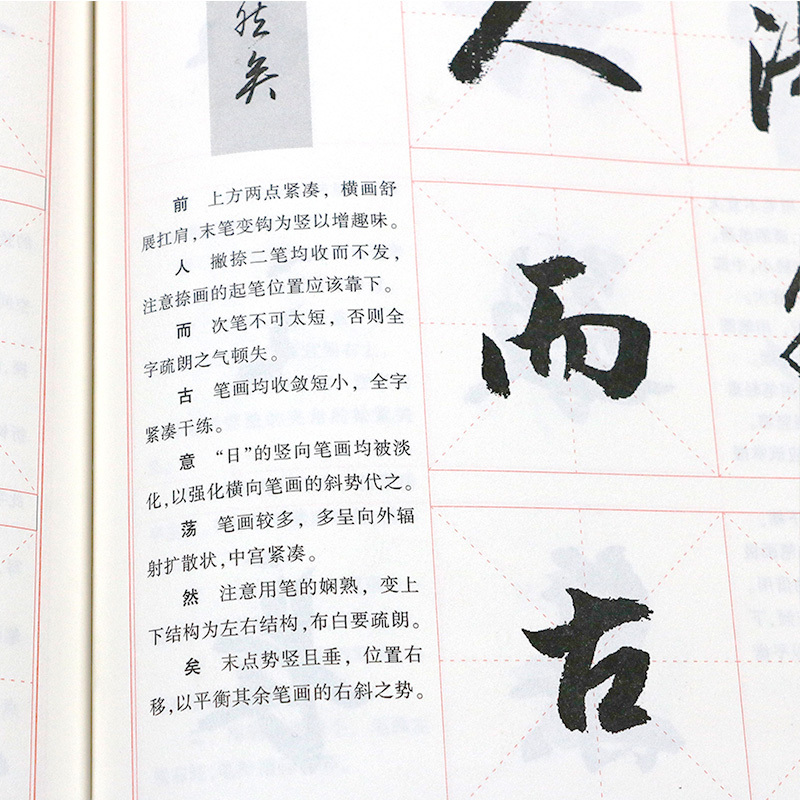 然
矣
前　上方两点紧凑，横画舒
展扛肩，末笔变钩为竖以增趣味。
人　撇捺二笔均收而不发，
注意捺画的起笔位置应该靠下。
而　次笔不可太短，否则全
字疏朗之气顿失。
古　笔画均收敛短小，全字
紧凑干练。
意　“日”的竖向笔画均被淡
化，以强化横向笔画的斜势代之。
荡　笔画较多，多呈向外辐
射扩散状，中宫紧凑。
然　注意用笔的娴熟，变上
下结构为左右结构，布白要疏朗。
矣　末点势竖且垂，位置右
移，以平衡其余笔画的右斜之势。
人
而
古